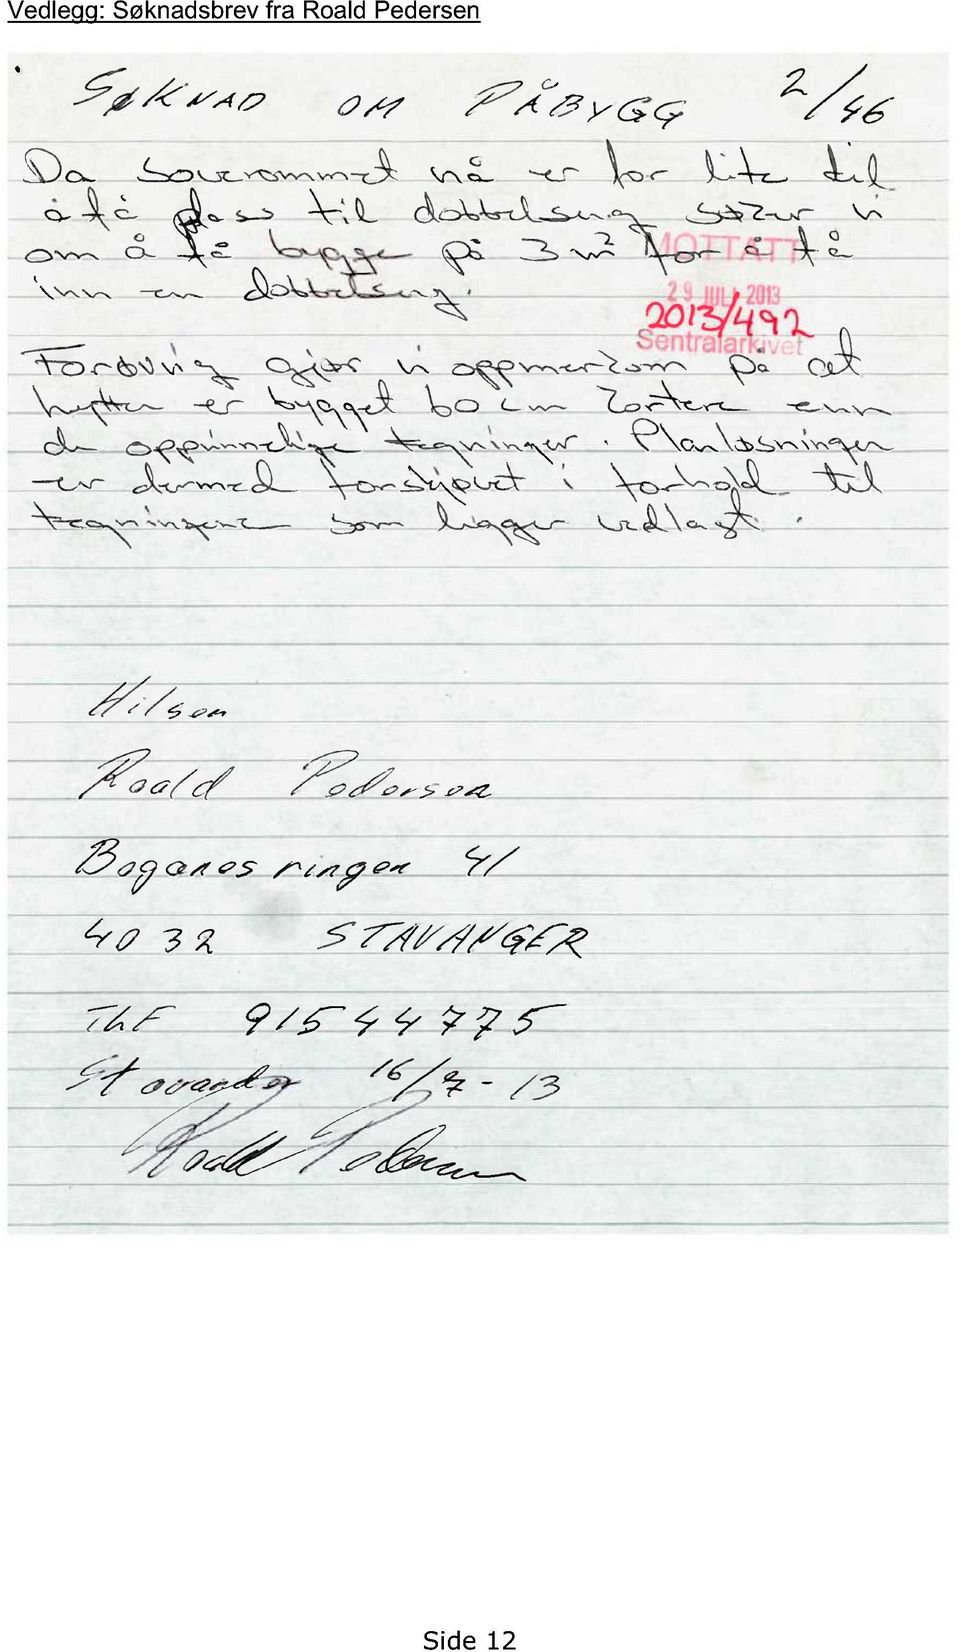 Vedlegg: Søknadsbrev fra Roald Pedersen
SØKNAD OM PÅBYGG 2/46
Da soverommet nå er for lite til
å få plass til dobbelseng søker vi
om å få bygge på 3 m² for å få
inn en dobbelseng.
MOTTATT
29 JULI 2013
2013/492
Sentralarkivet
Forøvrig gjør vi oppmerksom på at
hytten er bygget 60 cm kortere enn
de oppinnelige tegninger. Planløsningen
er dermed forskjøvet i forhold til
tegningene som ligger vedlagt.
Hilsen
Roald Pedersen
Boganesringen 41
4032 STAVANGER
Tlf 91544775
Stavanger 16/7-13
Roald Pedersen
Side 12